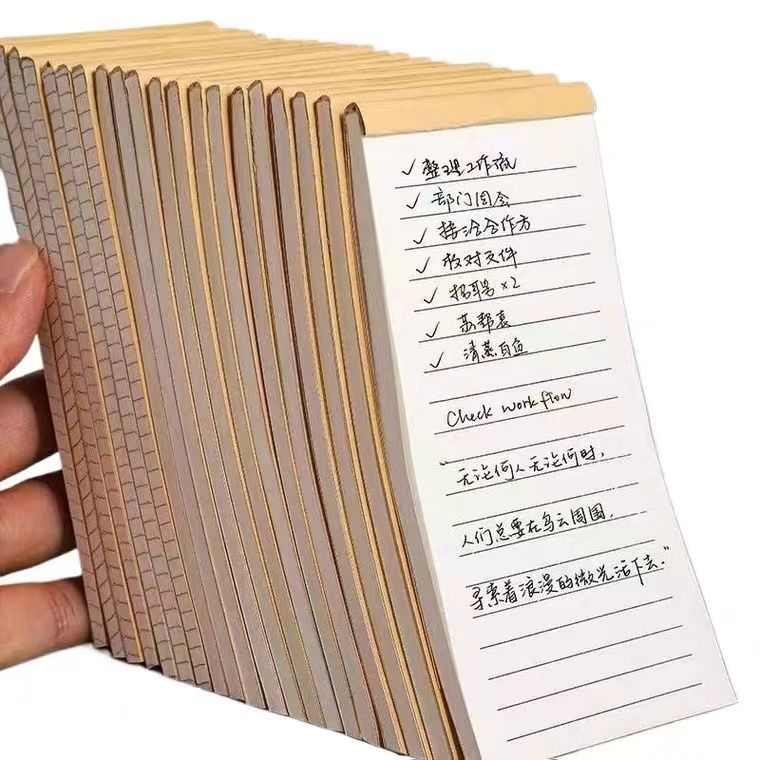 ✓ 整理工作流
✓ 部门周会
✓ 接洽合作方
✓ 校对文件
✓ 招聘×2
✓
✓ 清蒸白鱼
Check workflow
“无论何人无论何时,
人们总要在乌云周围,
寻索着浪漫的微光活下去.”